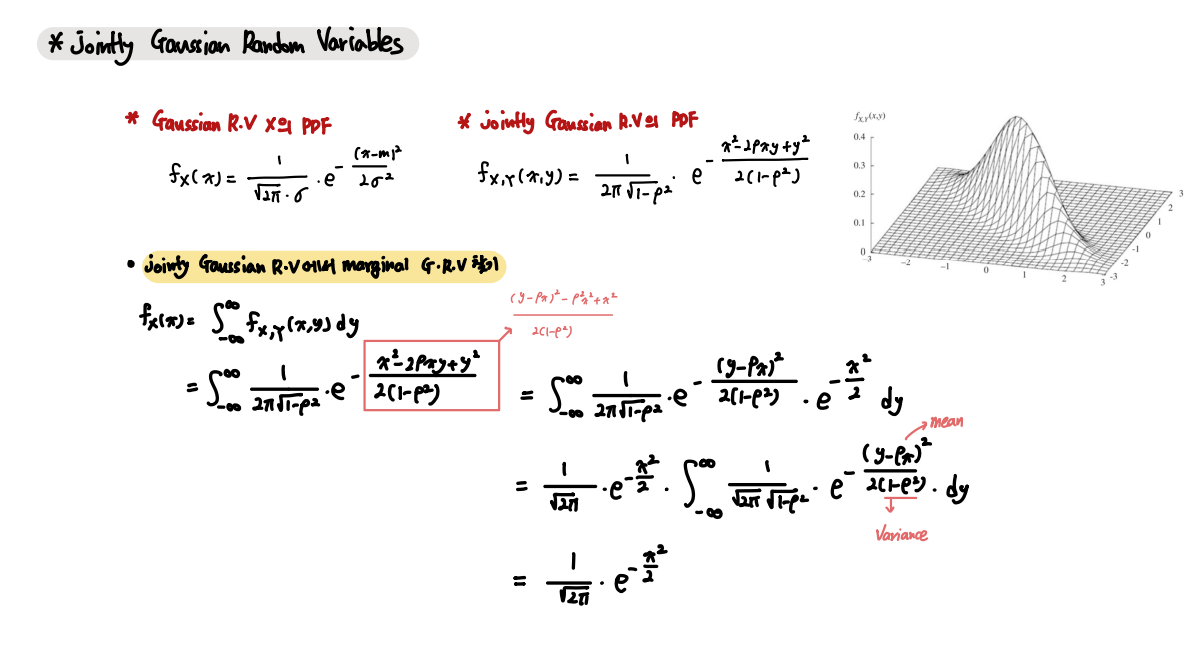 * Jointly Gaussian Random Variables
* Gaussian R.V X의 PDF
f_X(x) = 1/(√2π · σ) · e^{-(x-m)²/2σ²}
* jointly Gaussian R.V의 PDF
f_{X,Y}(x,y) = 1/(2π√1-ρ²) · e^{-(x²-2ρxy+y²)/2(1-ρ²)}
f_{X,Y}(x,y)
0.4
0.3
0.2
0.1
0
-3 -2 -1 0 1 2 3
-3 -2 -1 0 1 2 3
• jointly Gaussian R.V에서 marginal G.R.V 찾기
f_X(x) = ∫_{-∞}^{∞} f_{X,Y}(x,y) dy
((y-ρx)² - ρ²x² + x²)/2(1-ρ²)
= ∫_{-∞}^{∞} 1/(2π√1-ρ²) · e^{-(x²-2ρxy+y²)/2(1-ρ²)}
= ∫_{-∞}^{∞} 1/(2π√1-ρ²) · e^{-(y-ρx)²/2(1-ρ²)} · e^{-x²/2} dy
mean
= 1/√2π · e^{-x²/2} · ∫_{-∞}^{∞} 1/(√2π √1-ρ²) · e^{-(y-ρx)²/2(1-ρ²)} · dy
Variance
= 1/√2π · e^{-x²/2}